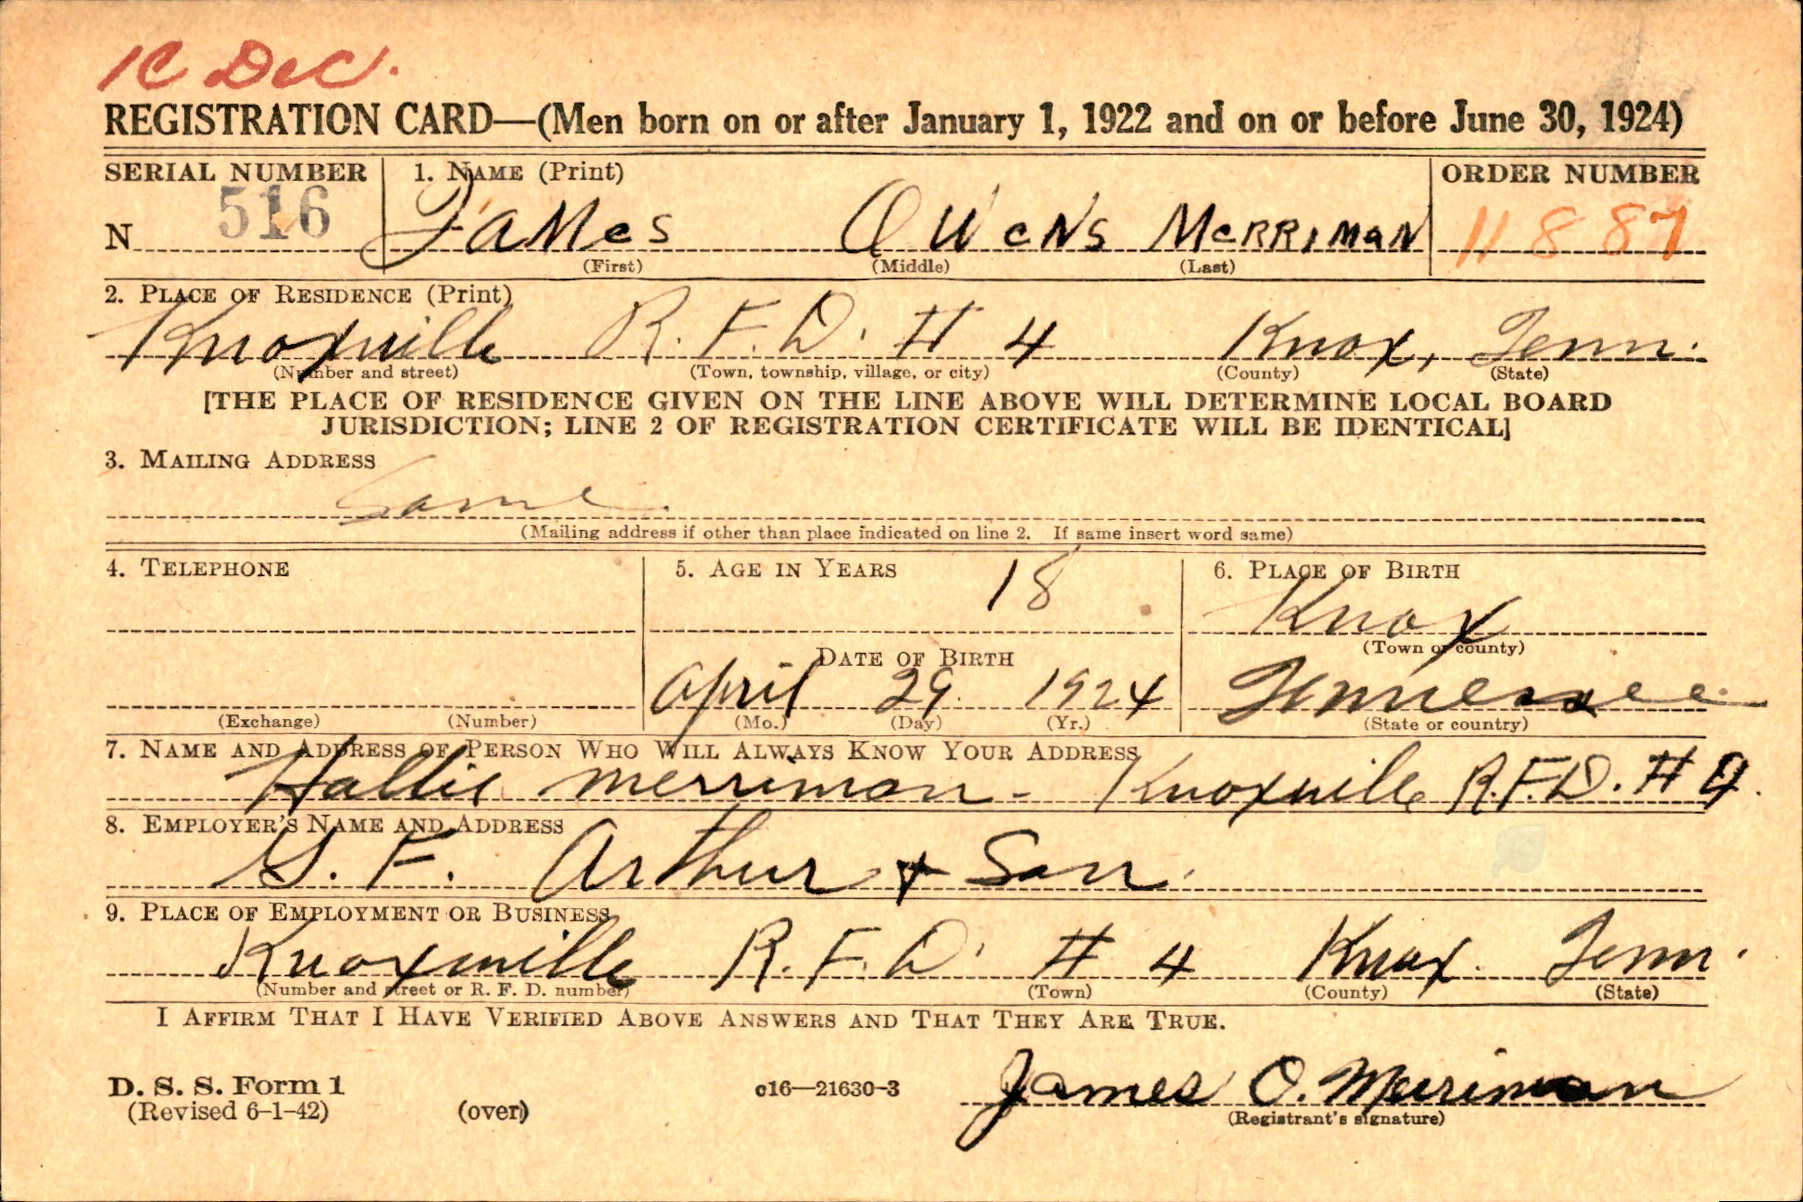 1C Dec.
REGISTRATION CARD—(Men born on or after January 1, 1922 and on or before June 30, 1924)
SERIAL NUMBER 1. NAME (Print) ORDER NUMBER
N 516 JAMES OWENS MERRIMAN 11887
(First) (Middle) (Last)
2. PLACE OF RESIDENCE (Print)
Knoxville R.F.D. # 4 Knox, Tenn.
(Number and street) (Town, township, village, or city) (County) (State)
[THE PLACE OF RESIDENCE GIVEN ON THE LINE ABOVE WILL DETERMINE LOCAL BOARD
JURISDICTION; LINE 2 OF REGISTRATION CERTIFICATE WILL BE IDENTICAL]
3. MAILING ADDRESS
Same.
(Mailing address if other than place indicated on line 2. If same insert word same)
4. TELEPHONE 5. AGE IN YEARS 6. PLACE OF BIRTH
18 Knox
(Town or county)
DATE OF BIRTH
April 29. 1924 Tennessee.
(Exchange) (Number) (Mo.) (Day) (Yr.) (State or country)
7. NAME AND ADDRESS OF PERSON WHO WILL ALWAYS KNOW YOUR ADDRESS
Hallie Merriman - Knoxville R.F.D. # 4.
8. EMPLOYER'S NAME AND ADDRESS
G. F. Arthur + Son.
9. PLACE OF EMPLOYMENT OR BUSINESS
Knoxville R.F.D. # 4 Knox. Tenn.
(Number and street or R. F. D. number) (Town) (County) (State)
I AFFIRM THAT I HAVE VERIFIED ABOVE ANSWERS AND THAT THEY ARE TRUE.
D. S. S. Form 1 c16—21630-3 James O. Merriman
(Revised 6-1-42) (over) (Registrant's signature)